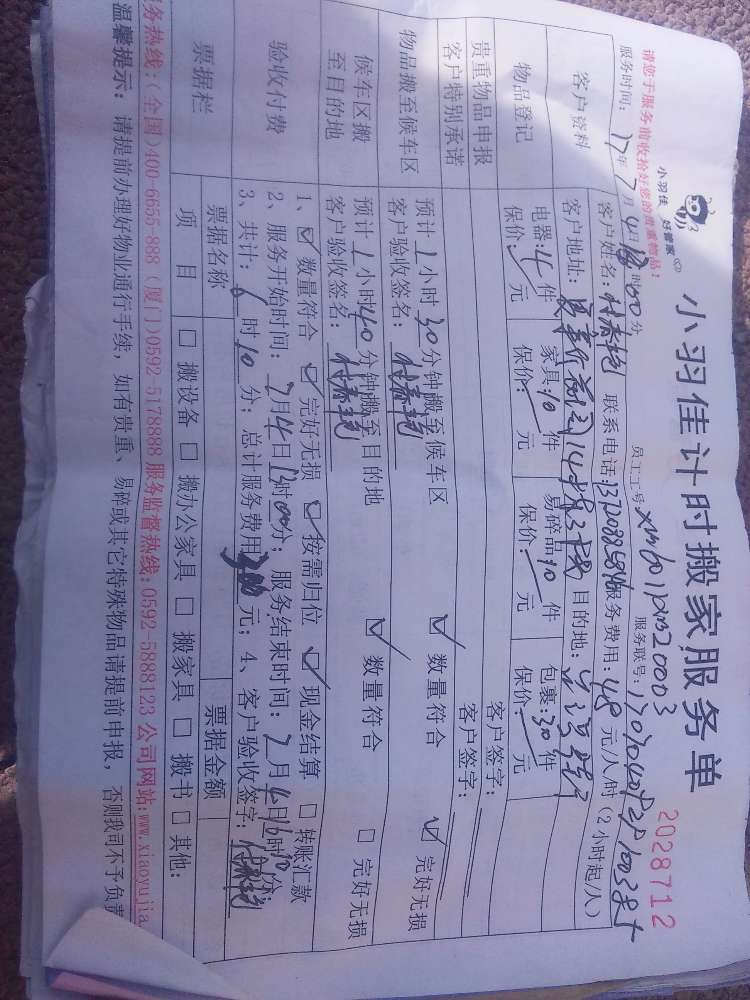 小羽佳 好管家
小羽佳计时搬家服务单
2028712
请您于服务前收拾好您的贵重物品!
员工工号
服务联号:
服务时间: 17年7月4日 时00分
客户资料
客户姓名: 联系电话: 服务费用: 48元/人/时(2小时起/人)
客户地址: 目的地:
物品登记
电器:4件 家具:10件 易碎品:10件 包裹:30件
保价: 元 保价: 元 保价: 元 保价: 元
贵重物品申报
客户签字:
客户特别承诺
客户签字:
物品搬至候车区
预计1小时30分钟搬至候车区 数量符合 完好无损
客户验收签名:
候车区搬至目的地
预计1小时40分钟搬至目的地 数量符合 完好无损
客户验收签名:
验收付费
1、数量符合 完好无损 按需归位 现金结算 转账汇款
2、服务开始时间: 7月4日 时00分; 服务结束时间: 7月4日 时10分;
3、共计: 时10分; 总计服务费用: 元; 4、客户验收签字:
票据栏
票据名称 票据金额
项目 搬设备 搬办公家具 搬家具 搬书 其他:
务热线:(全国)400-6655-888 (厦门)0592-5178888 服务监督热线:0592-5888123 公司网站:www.xiaoyujia.
温馨提示: 请提前办理好物业通行手续, 如有贵重、易碎或其它特殊物品请提前申报, 否则我司不予负责